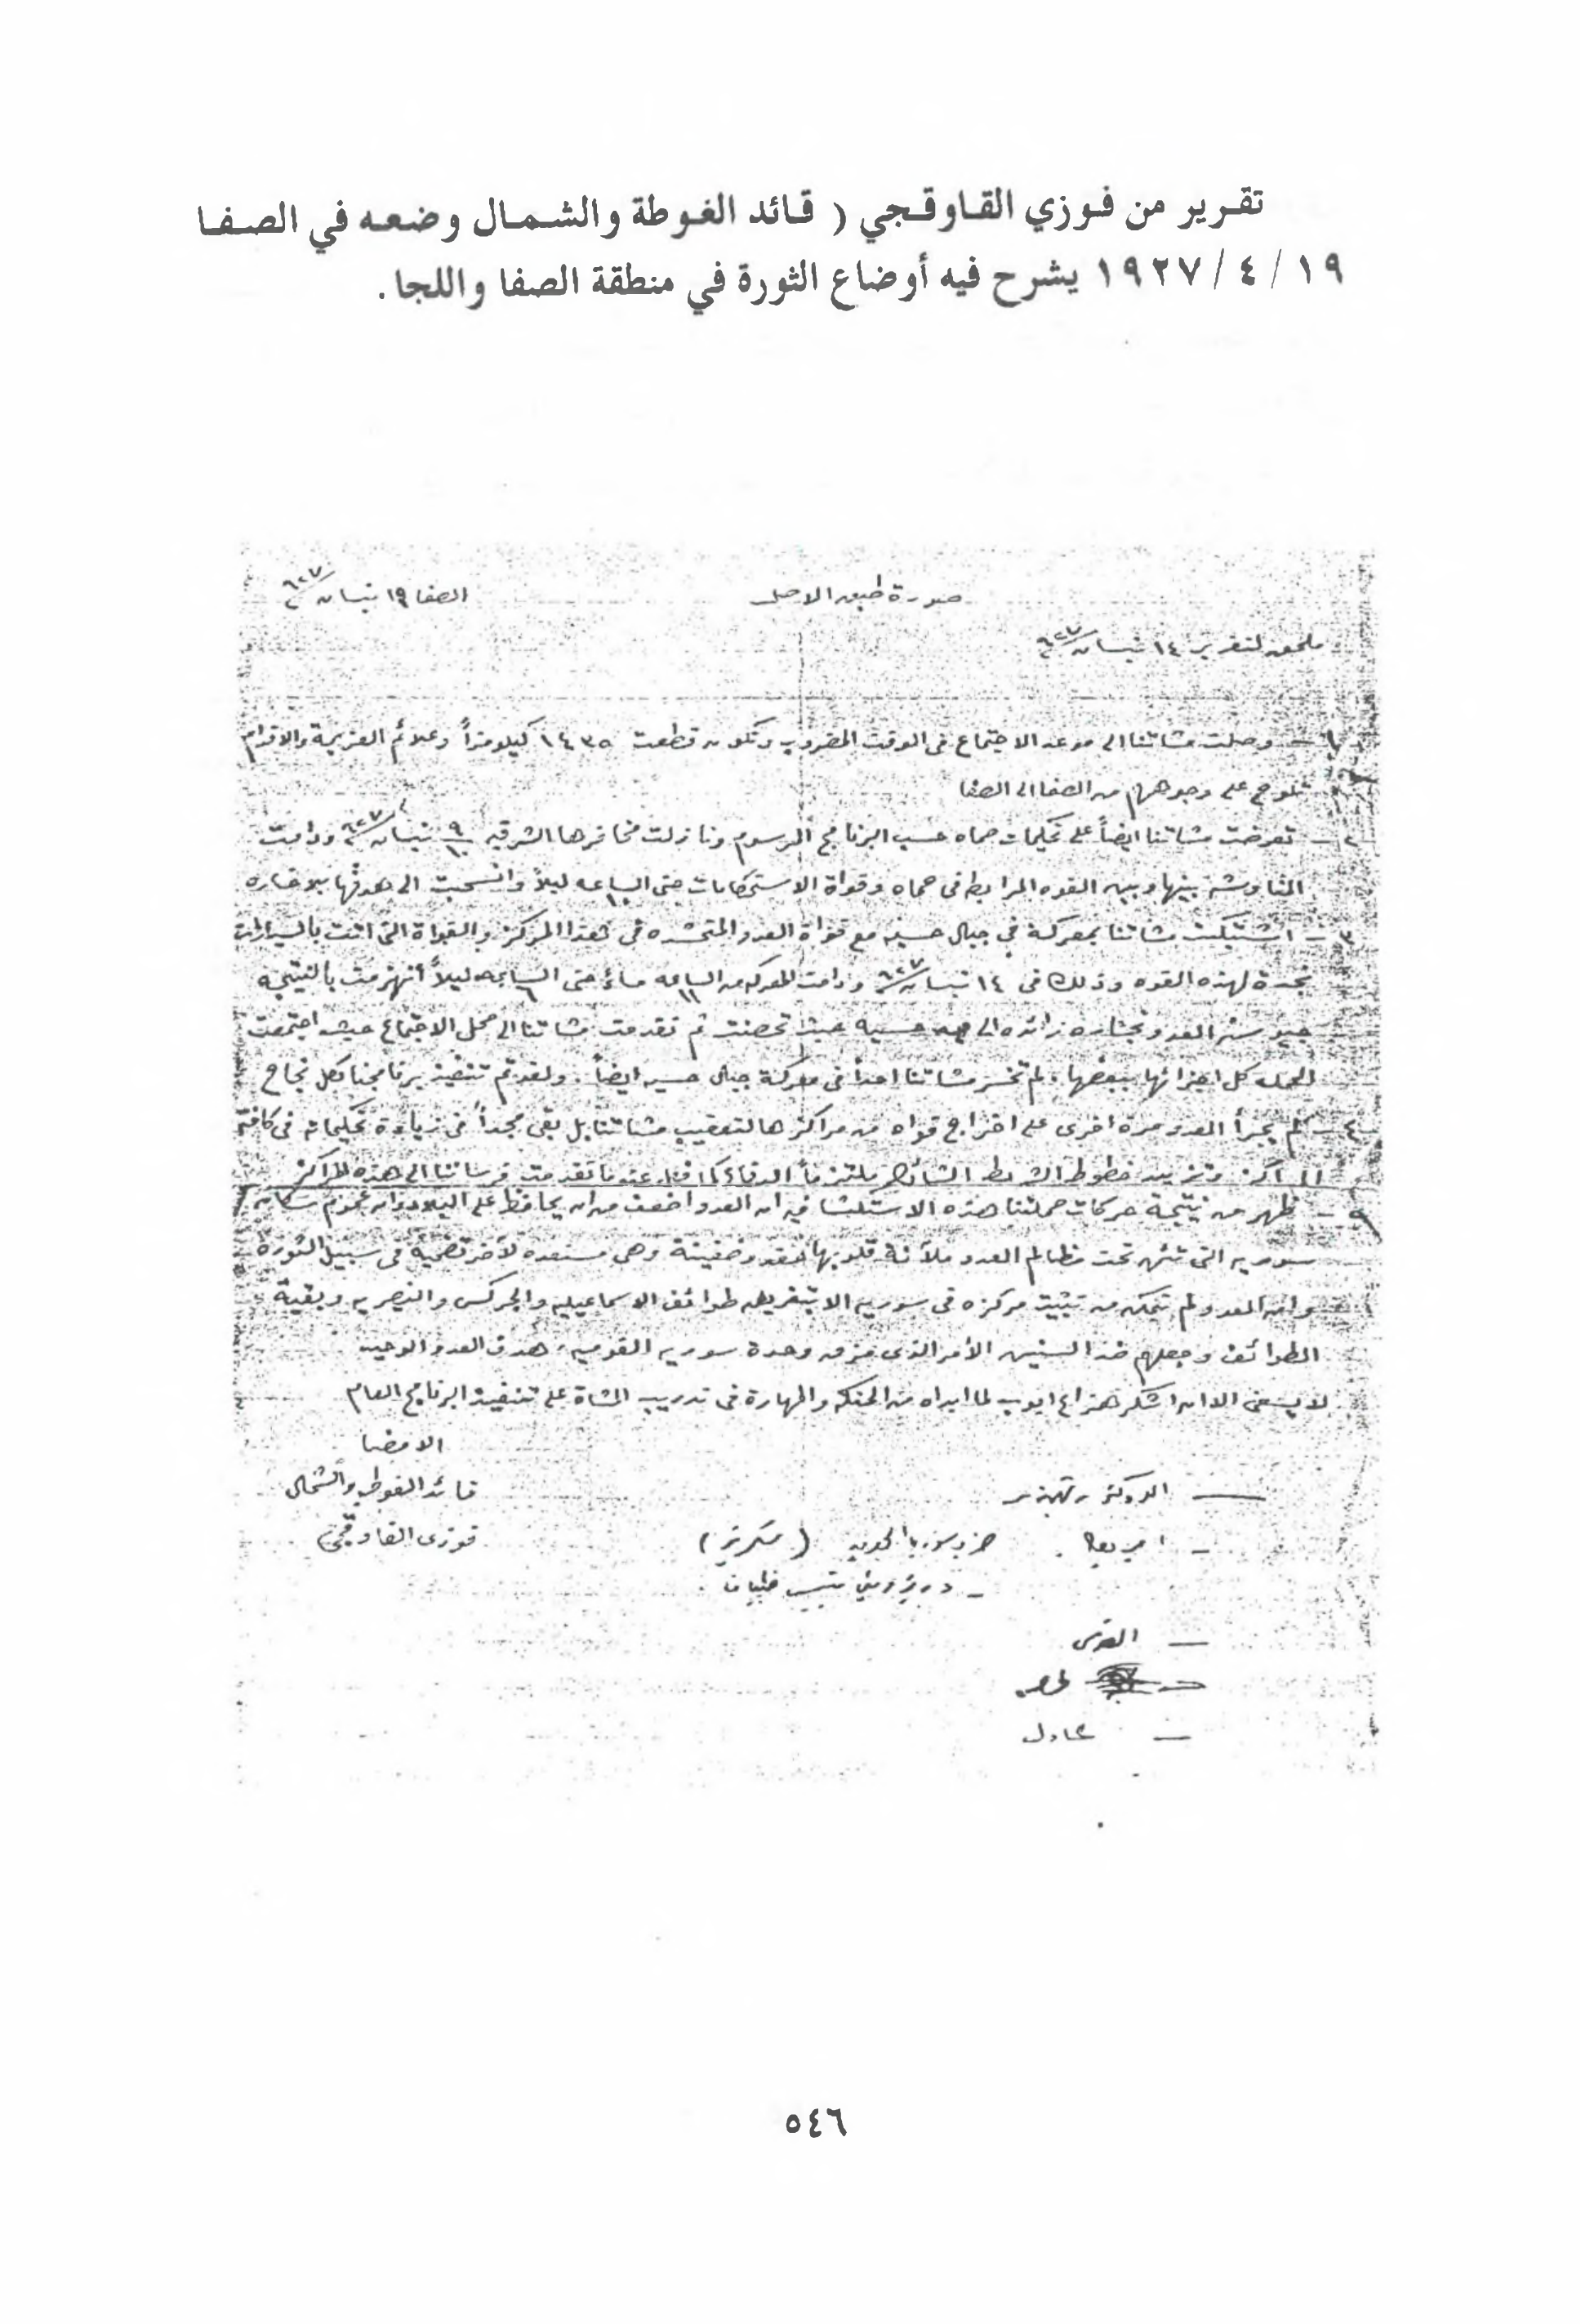 تقرير من فوزي القاوقجي ( قائد الغوطة والشمال وضعه في الصفا
١٩ / ٤ / ١٩٢٧ يشرح فيه أوضاع الثورة في منطقة الصفا واللجا .
صورة طبق الاصل
الصفا ١٩ نيسان
ملحق لتقرير ١٤ نيسان
١ – وصلت مشاتنا الى موعد الاجتماع فى الوقت المضروب وتكون قطعت ١٤٣٥ كيلومتراً وعلائم العزيمة والاقدام
تلوح على وجوههم من الصفا الى الصفا
٢ – تعرضت مشاتنا ايضاً على تحكيمات حماه حسب البرنامج المرسوم ونازلت مخافرها الشرقيه نيسان ودامت
المناوشه بينها وبين القوه المرابطه فى حماه وقواة الاستحكامات حتى الساعه ليلاً وانسحبت الى هدفها بلا خساره
٣ – اشتبكت مشاتنا بمعركة في جبال حسيه مع قواة العدو المتحشده فى هذا المركز والقواة التى اتت بالسيارات
نجدة لهذه القوه وذلك فى ١٤ نيسان ودامت المعركه من الساعه مساءً حتى الساعه ليلاً أنهزمت بالنتيجه
العدو بخساره زائده الى حسيه حيث تحصنت ثم تقدمت مشاتنا الى محل الاجتماع حيث اجتمعت
الحمله كل اجزائها ببعضها ، لم تخسر مشاتنا احداً فى معركة جبال حسيه ايضاً . ولقد تم تنفيذ برنامجنا بكل نجاح
٤ – لم يجرأ العدو مرة اخرى على اخراج قواه من مراكزها لتعقيب مشاتنا بل بقى مجداً فى زيادة تحكيماته فى كافة
المراكز وتزييد خطوط الشريط الشائك ملتزماً الدفاع كما فعل عندما تقدمت فرساننا الى هذه المراكز
٥ – ظهر من نتيجة حركات حملتنا هذه الاستكشافيه ان العدو اضعف من ان يحافظ على البلاد وان عموم سكان
سوريه التى تئن تحت مظالم العدو ملآنة قلوبها بحقد وضغينة وهى مستعده لآخر تضحية فى سبيل الثورة
وان العدو لم يتمكن من تثبيت مركزه فى سوريه الا بتفريق طوائف الاسماعيليه والجركس والنصيريه وبقية
الطوائف وجعلهم ضد السنيين الأمر الذى مزق وحدة سوريه القوميه ، هدف العدو الوحيد
لا يسعنى الا ان اشكر هزاع ايوب لما ابداه من الحنكه والمهارة فى تدريب المشاة على تنفيذ البرنامج العام
الامضا
قائد الغوطه والشمال
فوزى القاوقجى
— الدكتور شهبندر
— اميركا . حزب سوريا الجديده
— القدس
— عادل
٥٤٦